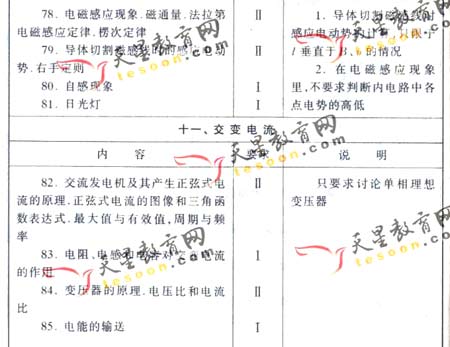 78. 电磁感应现象.磁通量.法拉第
电磁感应定律.楞次定律
Ⅱ
79. 导体切割磁感线时的感应电动
势.右手定则
Ⅱ
80. 自感现象
Ⅰ
81. 日光灯
Ⅰ
1. 导体切割磁感线时
感应电动势的计算,只限于
l 垂直于 B、v 的情况
2. 在电磁感应现象
里,不要求判断内电路中各
点电势的高低
十一、交变电流
内 容
要求
说 明
82. 交流发电机及其产生正弦式电
流的原理.正弦式电流的图像和三角函
数表达式.最大值与有效值,周期与频
率
Ⅱ
83. 电阻、电感和电容对交变电流
的作用
Ⅰ
84. 变压器的原理.电压比和电流
比
Ⅱ
85. 电能的输送
Ⅰ
只要求讨论单相理想
变压器
天星教育网
tesoon.com
天星教育网
tesoon.com
天星教育网
tesoon.com
天星教育网
tesoon.com
天星教育网
tesoon.com